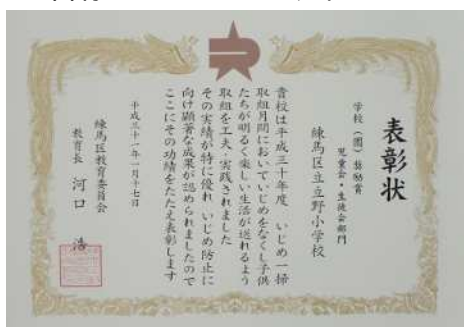 表彰状
学校(園)奨励賞
児童会・生徒会部門
練馬区立立野小学校
貴校は平成三十年度 いじめ一掃
取組月間においていじめをなくし子供
たちが明るく楽しい生活が送れるよう
取組を工夫、実践されました
その実績が特に優れ いじめ防止に
向け顕著な成果が認められましたので
ここにその功績をたたえ表彰します
平成三十一年一月十七日
練馬区教育委員会
教育長 河口 浩